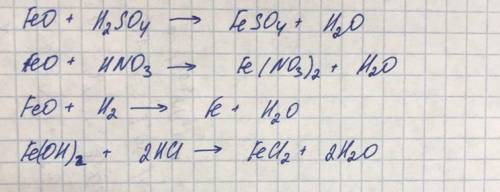 FeO + H₂SO₄ → FeSO₄ + H₂O
FeO + HNO₃ → Fe(NO₃)₂ + H₂O
FeO + H₂ → Fe + H₂O
Fe(OH)₂ + 2HCl → FeCl₂ + 2H₂O